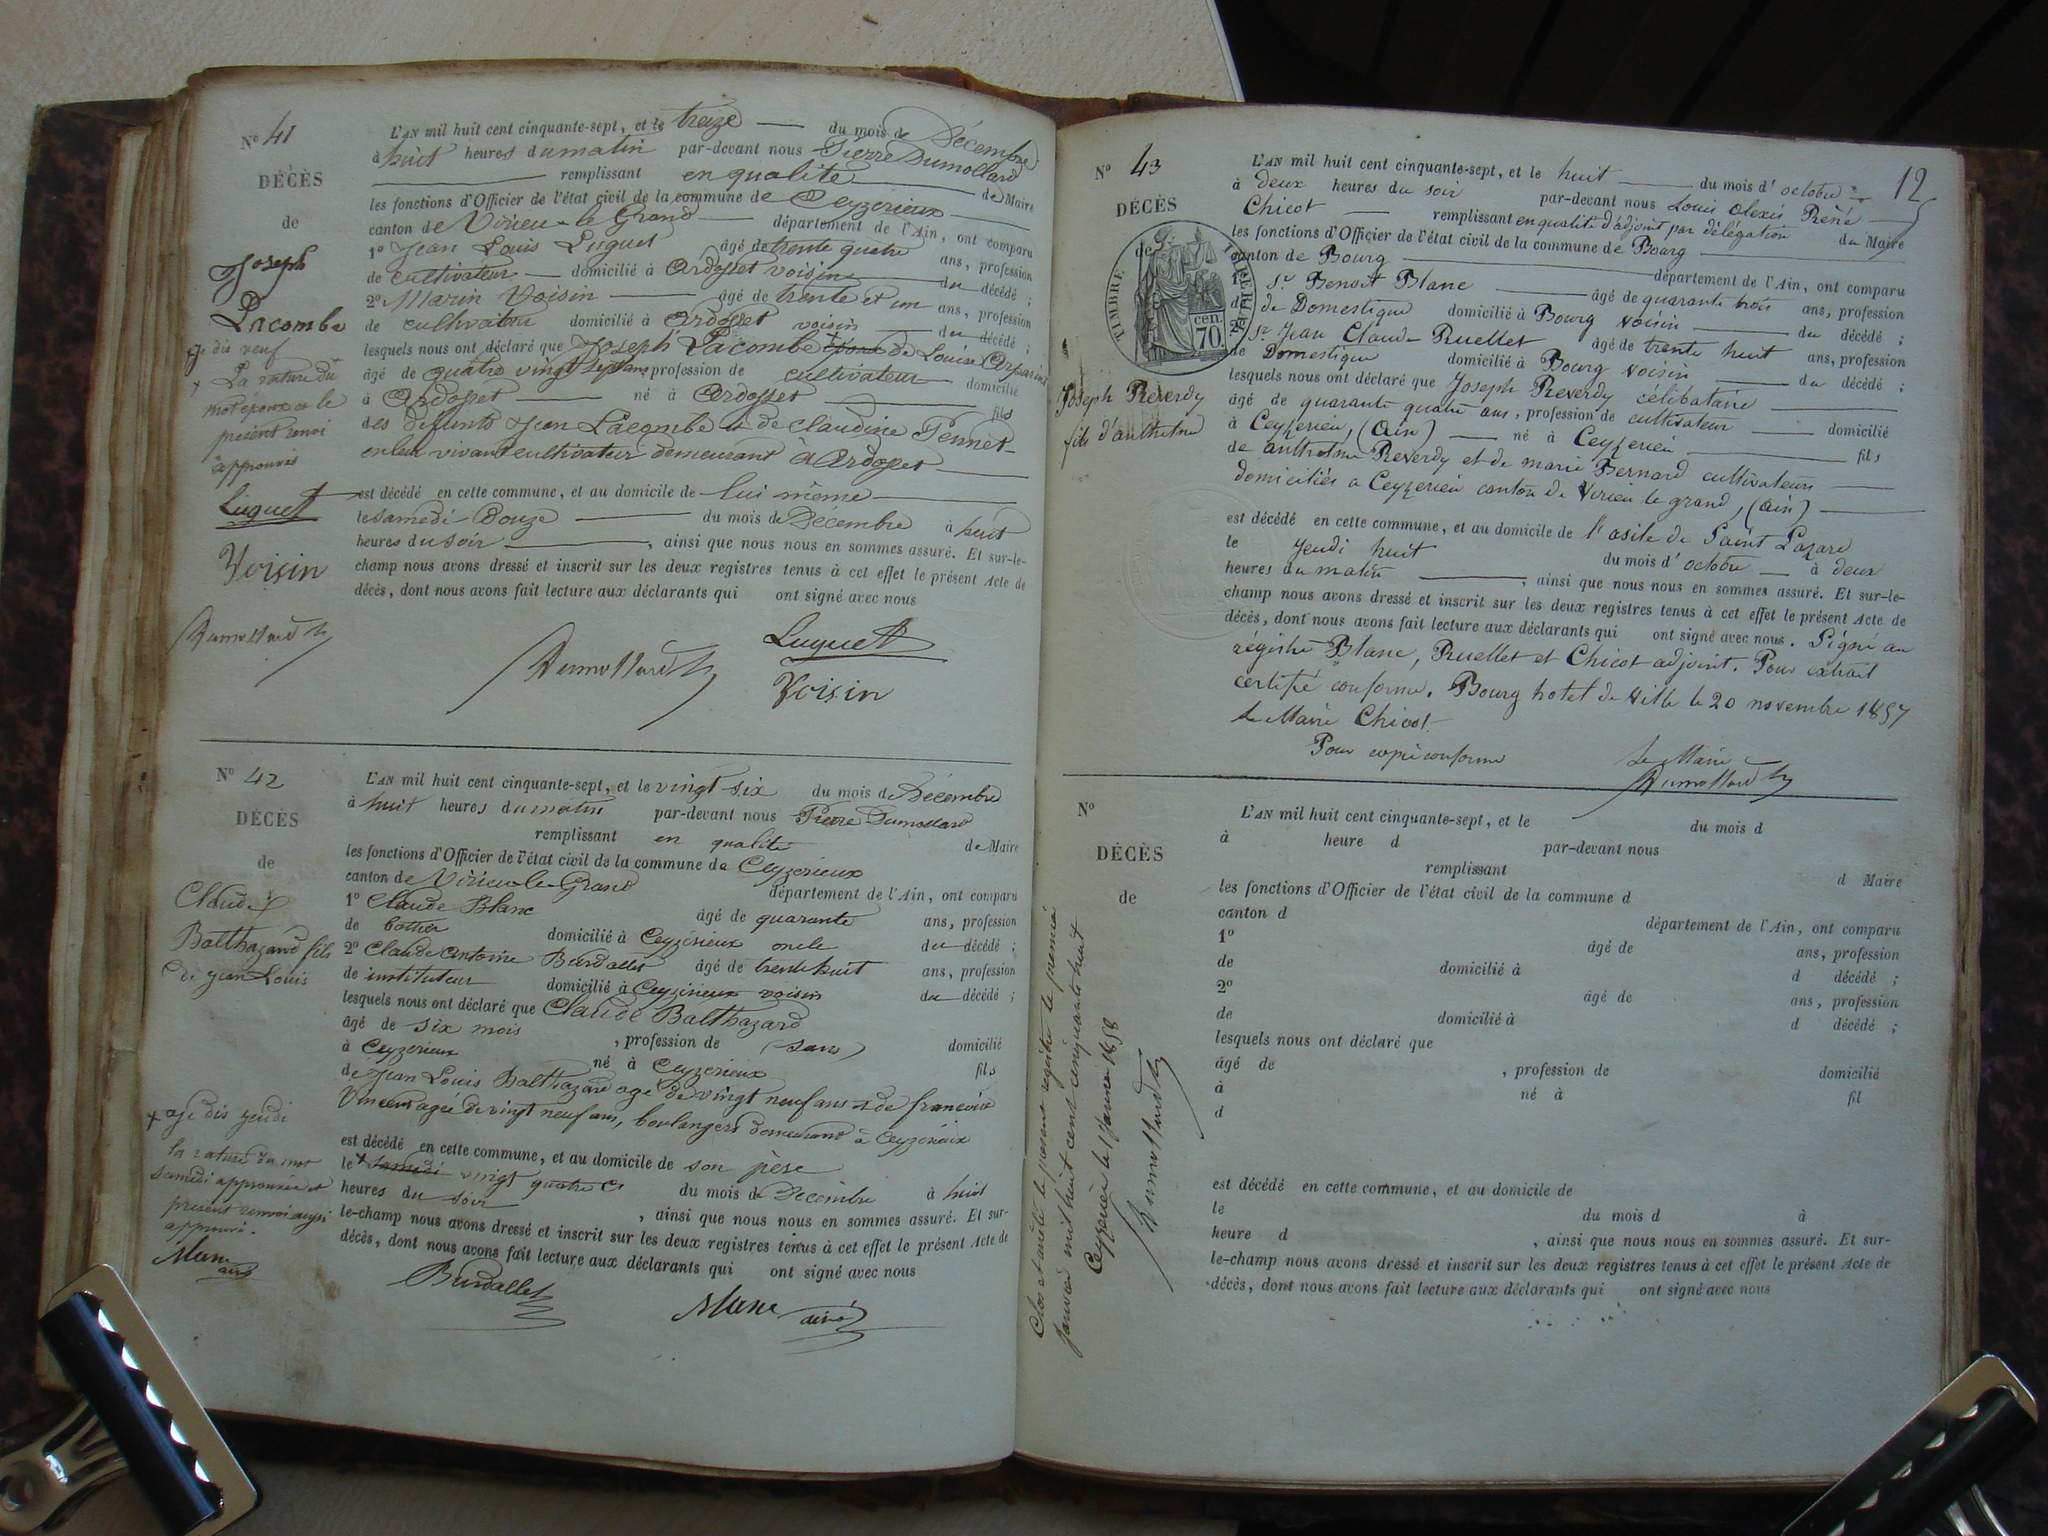 N° 41
DÉCÈS
de
Joseph
Lacombe
Je dis veuf
+ La rature du
mot époux et le
présent renvoi
approuvés
Luguet
Voisin
Dumollard
L'AN mil huit cent cinquante-sept, et le treize du mois de Décembre
à huit heures du matin par-devant nous Pierre Dumollard
remplissant en qualité de Maire
les fonctions d'Officier de l'état civil de la commune de Ceyzerieux
canton de Virieu-le-Grand département de l'Ain, ont comparu
1° Jean Louis Luguet âgé de trente quatre ans, profession
de cultivateur domicilié à Ardosset voisin du décédé ;
2° Marin Voisin âgé de trente et un ans, profession
de cultivateur domicilié à Ardosset voisin du décédé ;
lesquels nous ont déclaré que Joseph Lacombe époux de Louise
âgé de quatre vingt sept ans profession de cultivateur domicilié
à Ardosset né à Ardosset fils
des défunts Jean Lacombe et de Claudine Pennet
en leur vivant cultivateur demeurant à Ardosset
est décédé en cette commune, et au domicile de lui même
le samedi Douze du mois de Décembre à huit
heures du soir , ainsi que nous nous en sommes assuré. Et sur-le-
champ nous avons dressé et inscrit sur les deux registres tenus à cet effet le présent Acte de
décès, dont nous avons fait lecture aux déclarants qui ont signé avec nous
Luguet
Dumollard
Voisin
N° 42
DÉCÈS
de
Claude
Balthazard fils
de Jean Louis
+ Je dis jeudi
la rature du mot
samedi approuvée et
présent renvoi aussi
approuvé.
L'AN mil huit cent cinquante-sept, et le vingt six du mois de Décembre
à huit heures du matin par-devant nous Pierre Dumollard
remplissant en qualité de Maire
les fonctions d'Officier de l'état civil de la commune de Ceyzerieux
canton de Virieu-le-Grand département de l'Ain, ont comparu
1° Claude Blanc âgé de quarante ans, profession
de bottier domicilié à Ceyzérieux oncle du décédé ;
2° Claude Antoine Burdallet âgé de trente huit ans, profession
de instituteur domicilié à Ceyzérieux voisin du décédé ;
lesquels nous ont déclaré que Claude Balthazard
âgé de six mois , profession de (sans) domicilié
à Ceyzerieux né à Ceyzerieux fils
de Jean Louis Balthazard agé de vingt neuf ans et de françoise
Vincent agée de vingt neuf ans, boulangers demeurant à Ceyzérieux
est décédé en cette commune, et au domicile de son père
le + samedi vingt quatre du mois de Décembre à huit
heures du soir , ainsi que nous nous en sommes assuré. Et sur-
le-champ nous avons dressé et inscrit sur les deux registres tenus à cet effet le présent Acte de
décès, dont nous avons fait lecture aux déclarants qui ont signé avec nous
Burdallet
12
N° 43
DÉCÈS
de
TIMBRE IMPERIAL
70 cen.
Joseph Reverdy
fils d'anthelme
L'AN mil huit cent cinquante-sept, et le huit du mois d'octobre
à deux heures du soir par-devant nous Louis Alexis René
Chicot remplissant en qualité d'adjoint par délégation du Maire
les fonctions d'Officier de l'état civil de la commune de Bourg
canton de Bourg département de l'Ain, ont comparu
1° Sr Benoit Blanc âgé de quarante trois ans, profession
de Domestique domicilié à Bourg voisin du décédé ;
2° Sr Jean Claude Ruellet âgé de trente huit ans, profession
de Domestique domicilié à Bourg voisin du décédé ;
lesquels nous ont déclaré que Joseph Reverdy célibataire
âgé de quarante quatre ans, profession de cultivateur domicilié
à Ceyzerieu, (Ain) né à Ceyzerieu fils
de anthelme Reverdy et de marie Bernard cultivateurs
domiciliés a Ceyzerieu canton de Virieu le grand, (ain)
est décédé en cette commune, et au domicile de l'asile de Saint Lazare
le jeudi huit du mois d'octobre à deux
heures du matin , ainsi que nous nous en sommes assuré. Et sur-le-
champ nous avons dressé et inscrit sur les deux registres tenus à cet effet le présent Acte de
décès, dont nous avons fait lecture aux déclarants qui ont signé avec nous. Signé au
régistre Blanc, Ruellet et Chicot adjoint. Pour extrait
certifié conforme. Bourg hotel de Ville le 20 novembre 1857
Le Maire Chicot
Pour copie conforme Le Maire
Dumollard
N°
DÉCÈS
de
L'AN mil huit cent cinquante-sept, et le du mois d
à heure d par-devant nous
remplissant d Maire
les fonctions d'Officier de l'état civil de la commune d
canton d département de l'Ain, ont comparu
1° âgé de ans, profession
de domicilié à d décédé ;
2° âgé de ans, profession
de domicilié à d décédé ;
lesquels nous ont déclaré que
âgé de , profession de domicilié
à né à fil
d
est décédé en cette commune, et au domicile de
le du mois d à
heure d , ainsi que nous nous en sommes assuré. Et sur-
le-champ nous avons dressé et inscrit sur les deux registres tenus à cet effet le présent Acte de
décès, dont nous avons fait lecture aux déclarants qui ont signé avec nous
Clos et arrêté le présent registre le premier
Janvier mil huit cent cinquante huit
Ceyzerieu le 1 Janvier 1858
Dumollard